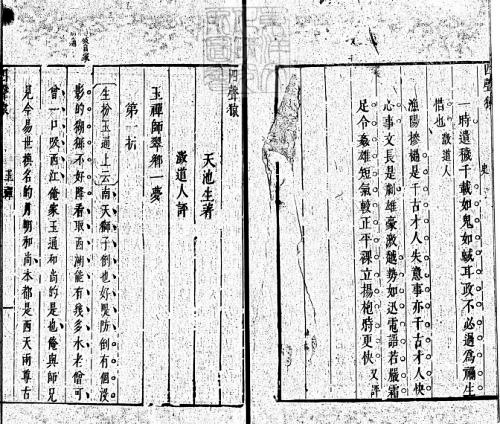 四聲猿
一時遺穢千載如鬼如蜮耳政不必過為禰生
惜也 澂道人
漁陽摻撾是千古才人失意事亦千古才人快
心事文長是劇雄豪激越勢如迅電語若嚴霜
足令姦雄短氣較正平裸立揚枹時更快 又評
四聲猿
天池生著
澂道人評
玉禪師翠鄉一夢
第一折
生扮玉通上云南天獅子倒也好隄防倒有個沒
影的猢猻不好降看取西湖能有幾多水老僧可
曾一口吸西江俺家玉通和尚的是也俺與師兄
見今易世換名的月明和尚本都是西天兩尊古
四聲猿
玉禪
一